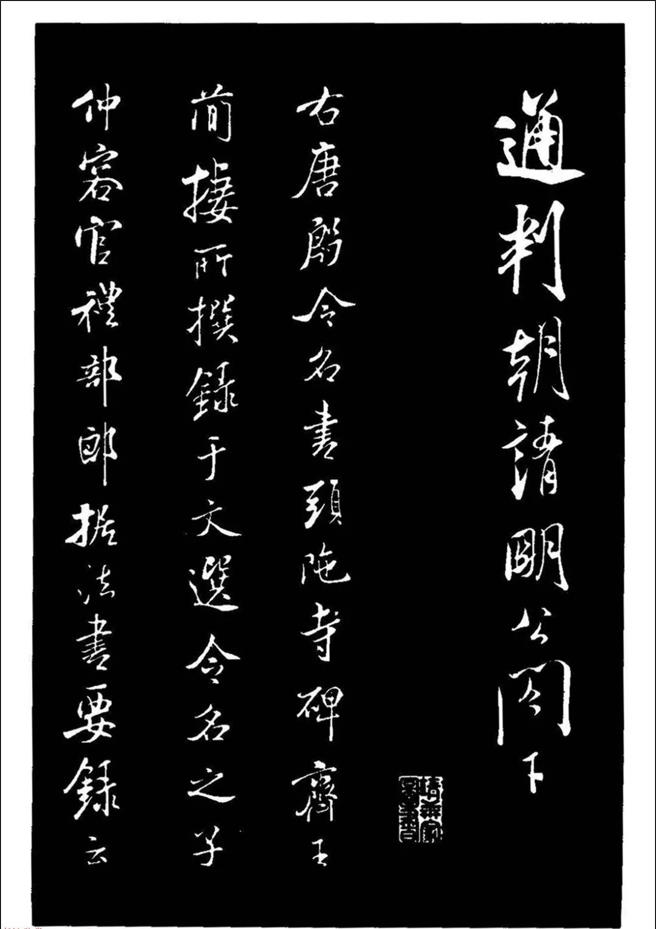 通判朝請明公閣下
右唐殷令名書頭陁寺碑齊王
簡棲所撰録于文選令名之子
仲容官禮部郎据法書要録云